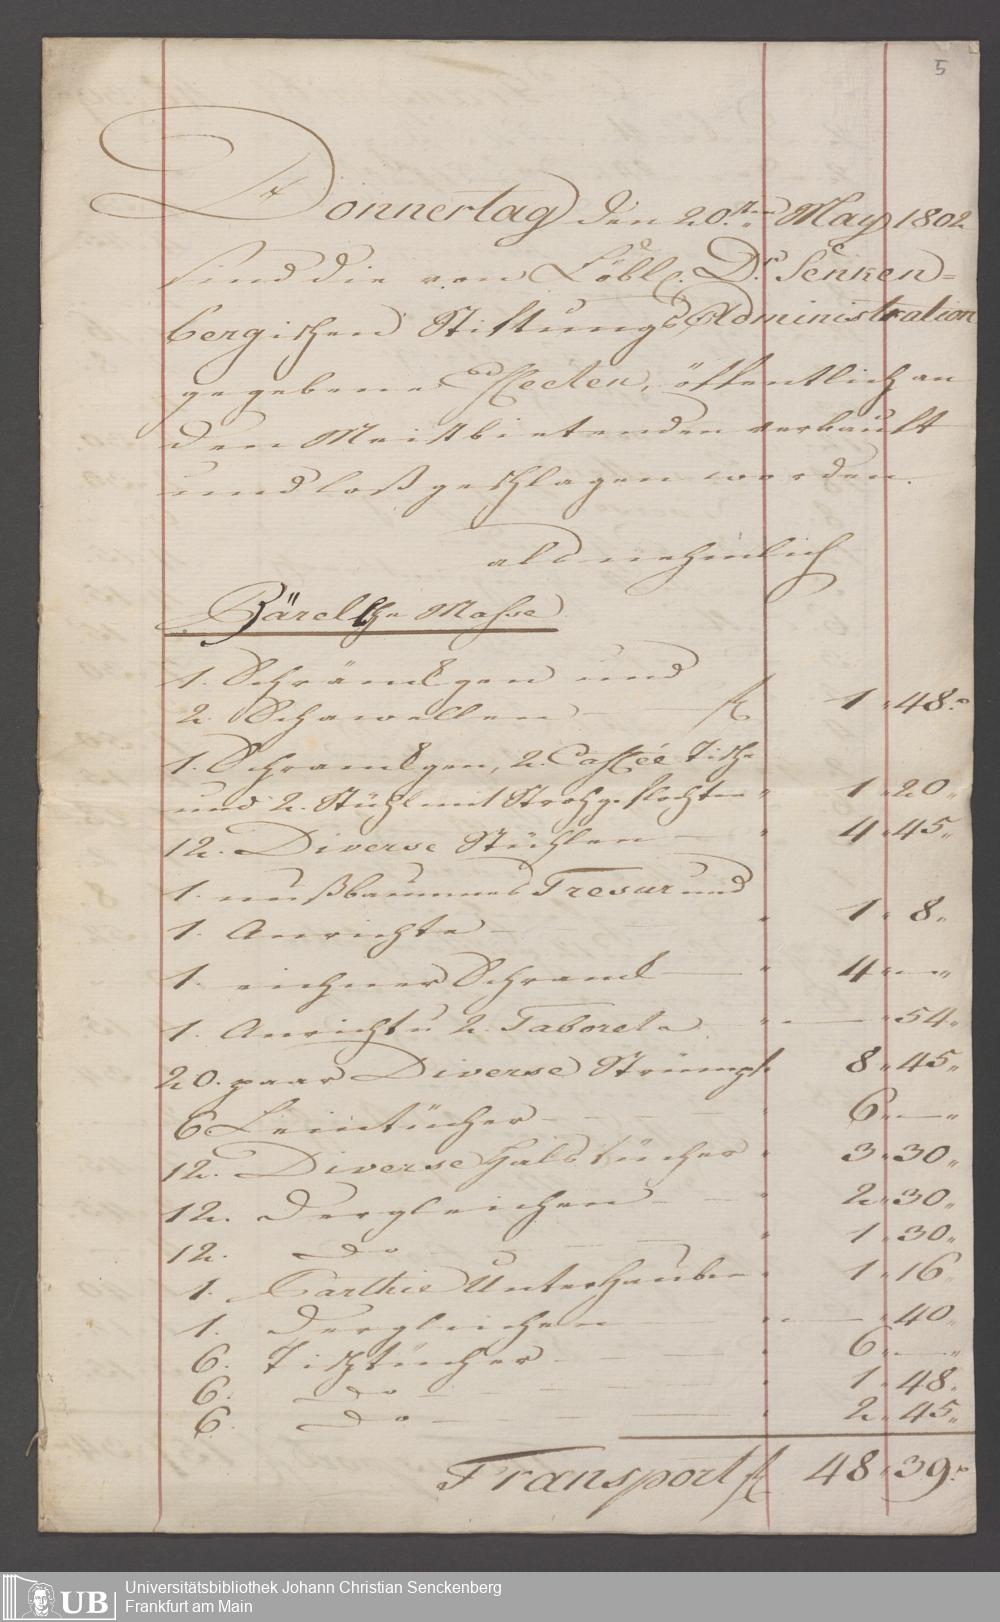 5
Donnerstag den 20.sten May 1802
sind die von Löbl. Dr. Senken=
bergischen Stiftungs Administration
gegebene Effecten, öffentlich an
den Meistbietenden verkauft
und loßgeschlagen worden.
als nehmlich
Bärellsche Masse
1. Schränkgen und
2. Schawellen — f 1 " 48.
1. Schränkgen, 2. Caffée Tische
und 2. Stühl mit Strohgeflochten " 1 " 20 "
12. Diverse Stühlen — " 4 " 45 "
1. nußbaumnes Tresur und
1. Anrichte — " 1 " 8 "
1. eichner Schrank — " 4 " — "
1. Anricht u 2. Taborete " — " 54 "
20. paar Diverse Strümpfe 8 " 45 "
6 Leintücher — " 6 " — "
12. Diverse Halstücher " 3 " 30 "
12. dergleichen — " 2 " 30 "
12. Do — " 1 " 30 "
1. Parthie Unterhauben " 1 " 16 "
1. dergleichen — " — " 40 "
6. Tischtücher — " 6 " — "
6. Do — " 1 " 48 "
6. Do — " 2 " 45 "
Transport f 48 " 39 "
Universitätsbibliothek Johann Christian Senckenberg
Frankfurt am Main
UB